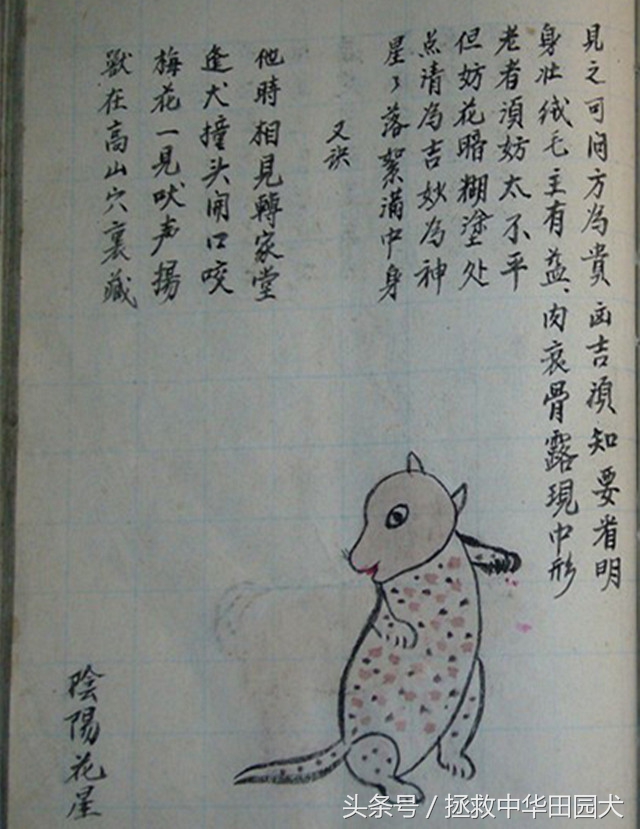 見之可问方為貴 凶吉须知要省明
身壮绒毛主有益、肉衰骨露現中形
老者須妨太不平
但妨花暗糊塗处
点清為吉妙為神
星々落絮满中身
又诀
他時相見轉家堂
逢犬撞头闹口咬
梅花一見吠声揚
獸在高山穴裏藏
陰陽花星
头条号／拯救中华田园犬